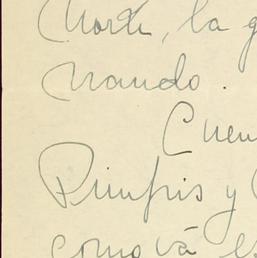 Norte, la g
nando.
Cuen
Pimpis y
como vá es